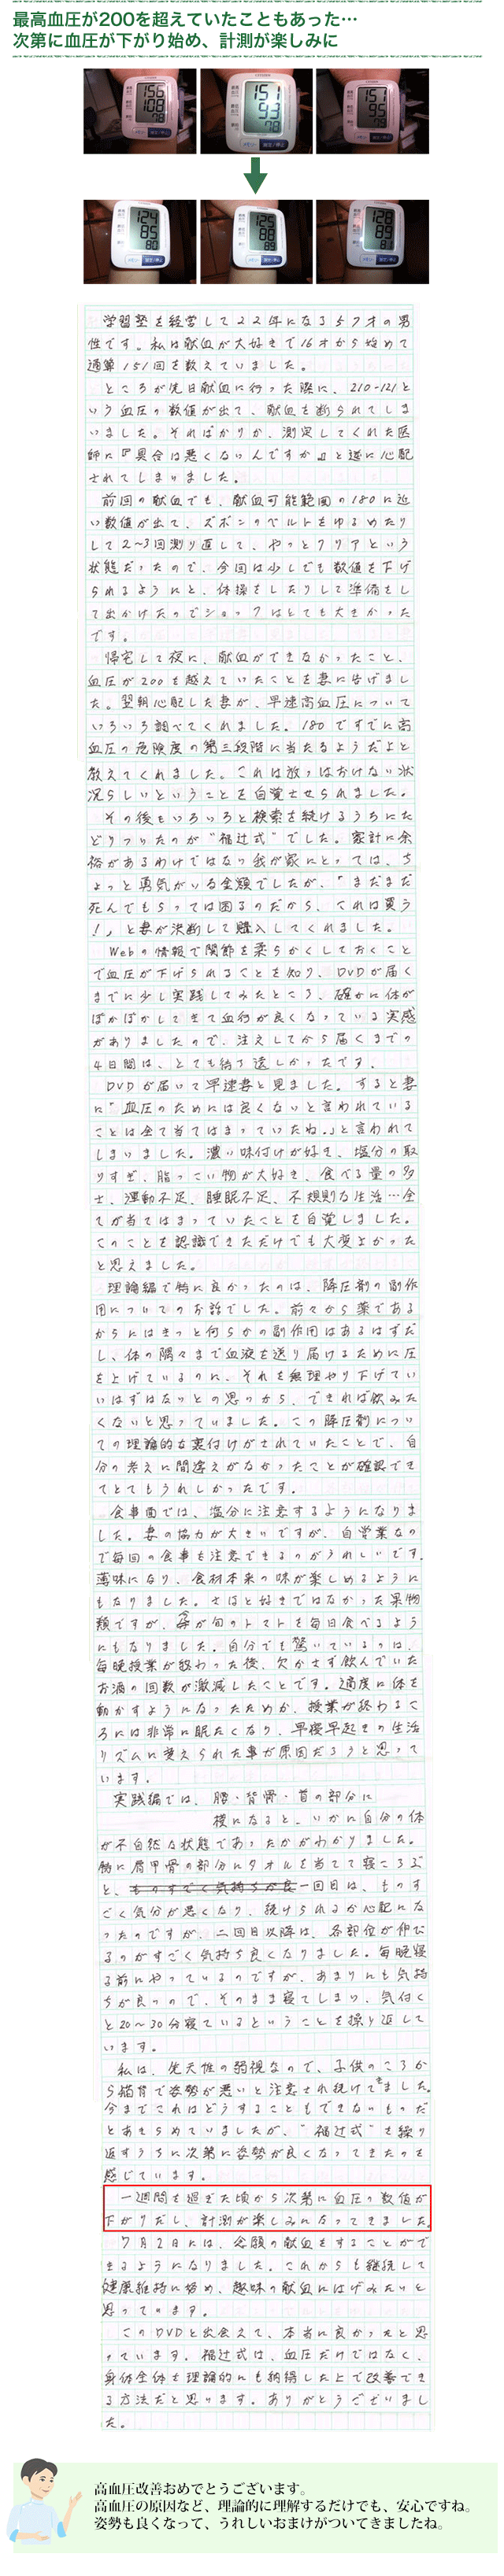 最高血圧が200を超えていたこともあった…
次第に血圧が下がり始め、計測が楽しみに
156
108
78
151
93
78
151
95
79
124
89
89
125
88
89
128
89
81
学習塾を経営して22年になる57才の男
性です。私は献血が大好きで16才から始めて
通算151回を数えていました。
ところが先日献血に行った際に、210-121と
いう血圧の数値が出て、献血を断られてしま
いました。そればかりか、測定してくれた医
師に『具合は悪くないんですか』と逆に心配
されてしまいました。
前回の献血でも、献血可能範囲の180に近
い数値が出て、ズボンのベルトをゆるめたり
して2~3回測り直して、やっとクリアという
状態だったので、今回は少しでも数値を下げ
られるようにと、体操をしたりして準備をし
て出かけたのでショックはとても大きかった
です。
帰宅して夜に、献血ができなかったこと、
血圧が200を越えていたことを妻に告げまし
た。翌朝心配した妻が、早速高血圧について
いろいろ調べてくれました。180ですでに高
血圧の危険度の第三段階に当たるようだよと
教えてくれました。これは放ってはおけない状
況らしいということを自覚させられました。
その後もいろいろと検索を続けるうちにた
どりついたのが"福辻式"でした。家計に余
裕があるわけではない我が家にとっては、ち
ょっと勇気がいる金額でしたが、「まだまだ
死んでもらっては困るのだから、これは買う
!」と妻が決断して購入してくれました。
Webの情報で関節を柔らかくしておくこと
で血圧が下げられることを知り、DVDが届く
までに少し実践してみたところ、確かに体が
ぽかぽかしてきて血行が良くなっている実感
がありましたので、注文してから届くまでの
4日間は、とても待ち遠しかったです。
DVDが届いて早速妻と見ました。すると妻
に「血圧のためには良くないと言われている
ことは全て当てはまっていたね。」と言われて
しまいました。濃い味付けが好き、塩分の取
りすぎ、脂っこい物が大好き、食べる量の多
さ、運動不足、睡眠不足、不規則な生活…全
てが当てはまっていたことを自覚しました。
このことを認識できただけでも大変よかった
と思えました。
理論編で特に良かったのは、降圧剤の副作
用についてのお話でした。前々から薬である
からにはきっと何らかの副作用はあるはずだ
し、体の隅々まで血液を送り届けるために圧
を上げているのに、それを無理やり下げてい
いはずはないとの思いから、できれば飲みた
くないと思っていました。この降圧剤につい
ての理論的な裏付けがされていたことで、自
分の考えに間違えがなかったことが確認でき
てとてもうれしかったです。
食事面では、塩分に注意するようになりま
した。妻の協力が大きいですが、自営業なの
で毎回の食事を注意できるのがうれしいです。
薄味になり、食材本来の味が楽しめるように
もなりました。さほど好きではなかった果物
類ですが、今が旬のトマトを毎日食べるよう
にもなりました。自分でも驚いているのは、
毎晩授業が終わった後、欠かさず飲んでいた
お酒の回数が激減したことです。適度に体を
動かすようになったためか、授業が終わるこ
ろには非常に眠たくなり、早寝早起きの生活
リズムに変えられた事が原因だろうと思って
います。
実践編では、腰・背骨・首の部分に
横になると、いかに自分の体
が不自然な状態であったかがわかりました。
特に肩甲骨の部分にタオルを当てて寝ころぶ
と、ものすごく気持ちが良一回目は、ものす
ごく気分が悪くなり、続けられるか心配にな
ったのですが、二回目以降は、各部位が伸び
るのがすごく気持ち良くなりました。毎晩寝
る前にやっているのですが、あまりにも気持
ちが良いので、そのまま寝てしまい、気付く
と20~30分寝ているということを繰り返して
います。
私は、先天性の弱視なので、子供のころか
ら猫背で姿勢が悪いと注意され続けてきました。
今までこれはどうすることもできないものだ
とあきらめていましたが、"福辻式"を繰り
返すうちに次第に姿勢が良くなってきたのを
感じています。
一週間を過ぎた頃から次第に血圧の数値が
下がりだし、計測が楽しみになってきました。
7月2日には、念願の献血をすることがで
きるようになりました。これからも継続して
健康維持に努め、趣味の献血にはげみたいと
思っています。
このDVDと出会えて、本当に良かったと思
っています。福辻式は、血圧だけではなく、
身体全体を理論的にも納得した上で改善でき
る方法だと思います。ありがとうございまし
た。
高血圧改善おめでとうございます。
高血圧の原因など、理論的に理解するだけでも、安心ですね。
姿勢も良くなって、うれしいおまけがついてきましたね。